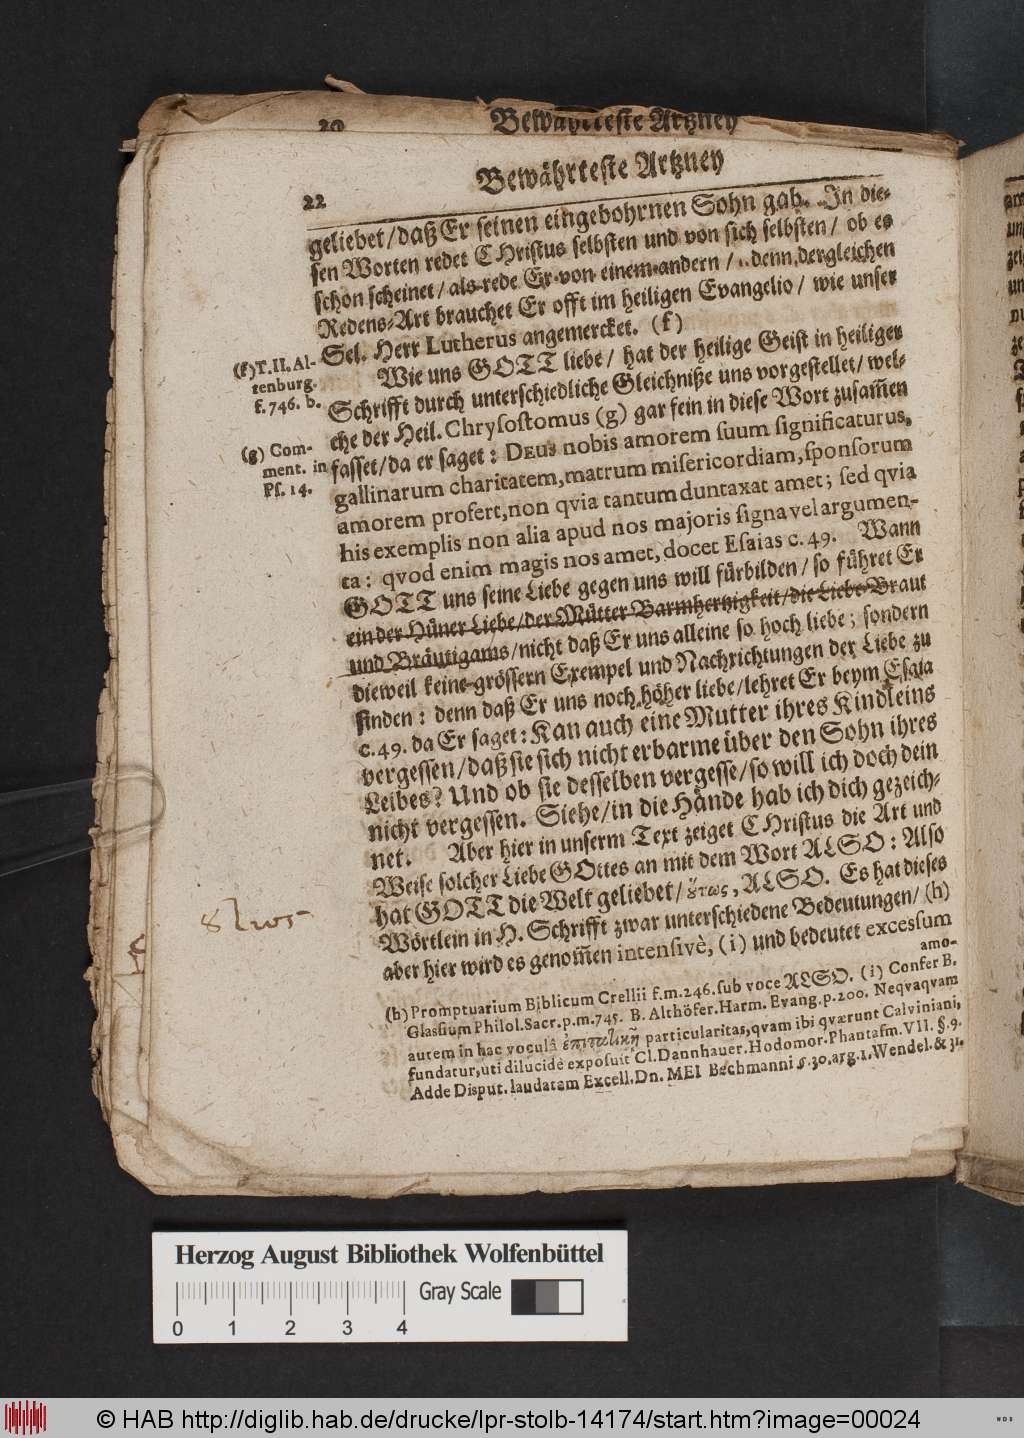 20 Bewährteste Artzney
22 Bewährteste Artzney
geliebet/ daß Er seinen eingebohrnen Sohn gab. In die-
sen Worten redet CHristus selbsten und von sich selbsten/ ob es
schon scheinet/ als rede Er von einem andern/ denn dergleichen
Redens-Art brauchet Er offt im heiligen Evangelio/ wie unser
Sel. Herr Lutherus angemercket. (f)
(f) T. II. Al-
tenburg.
f. 746. b.
Wie uns GOTT liebe/ hat der heilige Geist in heiliger
Schrifft durch unterschiedliche Gleichniße uns vorgestellet/ wel-
che der Heil. Chrysostomus (g) gar fein in diese Wort zusam̃en
(g) Com-
ment. in
Ps. 14.
fasset/ da er saget: DEUS nobis amorem suum significaturus,
gallinarum charitatem, matrum misericordiam, sponsorum
amorem profert, non qvia tantum duntaxat amet; sed qvia
his exemplis non alia apud nos majoris signa vel argumen-
ta: qvod enim magis nos amet, docet Esaias c. 49. Wann
GOTT uns seine Liebe gegen uns will fürbilden/ so führet Er
ein der Hüner Liebe/ der Mütter Barmhertzigkeit/ die Liebe Braut
und Bräutigams/ nicht daß Er uns alleine so hoch liebe; sondern
dieweil keine grössern Exempel und Nachrichtungen der Liebe zu
finden: denn daß Er uns noch höher liebe/ lehret Er beym Esaia
c. 49. da Er saget: Kan auch eine Mutter ihres Kindleins
vergessen/ daß sie sich nicht erbarme über den Sohn ihres
Leibes? Und ob sie desselben vergesse/ so will ich doch dein
nicht vergessen. Siehe/ in die Hände hab ich dich gezeich-
net. Aber hier in unserm Text zeiget CHristus die Art und
Weise solcher Liebe GOttes an mit dem Wort ALSO: Also
hat GOTT die Welt geliebet/ ὅτως, ALSO. Es hat dieses
Wörtlein in H. Schrifft zwar unterschiedene Bedeutungen/ (h)
aber hier wird es genom̃en intensivè, (i) und bedeutet excessum
amo-
(h) Promptuarium Biblicum Crellii f. m. 246. sub voce ALSO. (i) Confer B.
Glassium Philol. Sacr. p. m. 745. B. Althöfer. Harm. Evang. p. 200. Neqvaqvam
autem in hac voculâ ἐπιτατικῇ particularitas, qvam ibi qværunt Calviniani,
fundatur, uti dilucidè exposuit Cl. Dannhauer. Hodomor. Phantasm. VII. §. 9.
Adde Disput. laudatam Excell. Dn. MEI Bechmanni §. 30. arg. 1. Wendel. & 31.
Herzog August Bibliothek Wolfenbüttel
Gray Scale
0 1 2 3 4
© HAB http://diglib.hab.de/drucke/lpr-stolb-14174/start.htm?image=00024